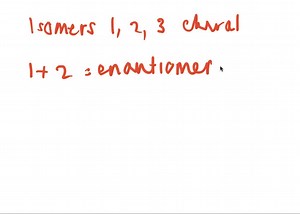 Isomers 1, 2, 3 chiral
1 + 2 = enantiomer.